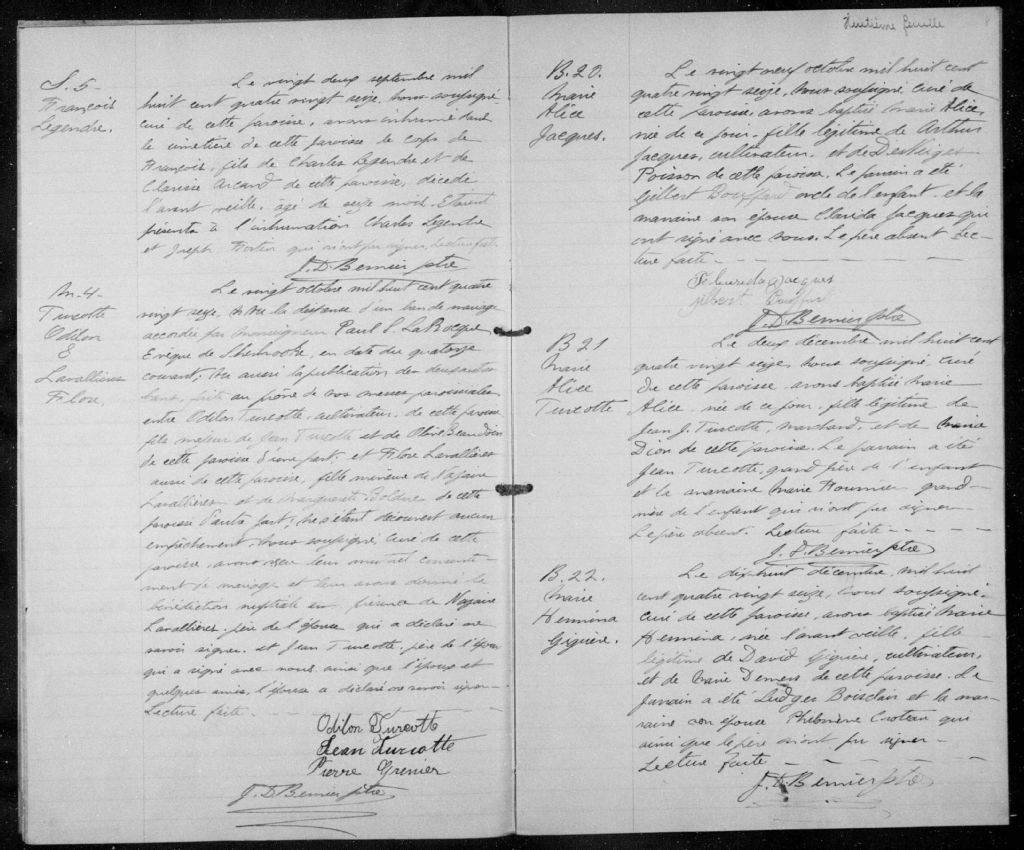 S. 5
François
Legendre.
Le vingt deux septembre mil
huit cent quatre vingt seize, nous soussigné
curé de cette paroisse, avons inhumé dans
le cimetière de cette paroisse le corps de
François, fils de Charles Legendre et de
Clarisse Arcand de cette paroisse, décédé
l'avant veille, agé de seize mois. Etaient
présents à l'inhumation Charles Legendre
et Joseph qui n'ont pu signer. Lecture faite
J. D. Bernier ptre
M. 4.
Turcotte
Odilon
&
Lavallières
Flore,
Le vingt octobre mil huit cent quatre
vingt seize, Vu la dispense d'un ban de mariage
accordée par Monseigneur Paul S. LaRocque
Evêque de Sherbrooke, en date du quatorze
courant; Vu aussi la publication des deux autres
bans, faite au prône de nos messes paroissiales
entre Odilon Turcotte, cultivateur, de cette paroisse
fils majeur de Jean Turcotte et de Olive Beaudoin
de cette paroisse d'une part; et Flore Lavallières
aussi de cette paroisse, fille mineure de Nazaire
Lavallières et de Marguerite Bolduc de cette
paroisse d'autre part; Ne s'étant découvert aucun
empêchement, nous soussigné curé de cette
paroisse, avons reçu leur mutuel consente-
ment de mariage et leur avons donné la
bénédiction nuptiale en présence de Nazaire
Lavallières, père de l'épouse qui a déclaré ne
savoir signer, et Jean Turcotte, père de l'époux
qui a signé avec nous ainsi que l'époux et
quelques amis, l'épouse a déclaré ne savoir signer
Lecture faite.
Odilon Turcotte
Jean Turcotte
Pierre Grenier
J. D. Bernier ptre
Huitième feuille
8
B. 20.
Marie
Alice
Jacques.
Le vingt neuf octobre mil huit cent
quatre vingt seize, nous soussigné, curé de
cette paroisse, avons baptisé Marie Alice,
née de ce jour, fille légitime de Arthur
Jacques, cultivateur, et de DesNeiges
Poisson de cette paroisse. Le parrain a été
Gilbert Bouffard oncle de l'enfant et la
marraine son épouse Clarida Jacques qui
ont signé avec nous. Le père absent Lec-
ture faite
Jacques
J. D. Bernier ptre
B 21
Marie
Alice
Turcotte
Le deux décembre mil huit cent
quatre vingt seize, nous soussigné, curé
de cette paroisse, avons baptisé Marie
Alice, née de ce jour, fille légitime de
Jean J. Turcotte, marchand, et de Marie
Dion de cette paroisse. Le parrain a été
Jean Turcotte, grand père de l'enfant
et la marraine Marie Fournier grand-
mère de l'enfant qui n'ont pu signer
Le père absent. Lecture faite
J. D. Bernier ptre
B. 22.
Marie
Hermina
Giguère.
Le dix huit décembre, mil huit
cent quatre vingt seize, nous soussigné,
curé de cette paroisse, avons baptisé Marie
Hermina, née l'avant veille, fille
légitime de David Giguère, cultivateur,
et de Marie Demers de cette paroisse. Le
parrain a été Ludger Boisclair et la mar-
raine son épouse Philomène Croteau qui
ainsi que le père n'ont pu signer
Lecture faite
J. D. Bernier ptre